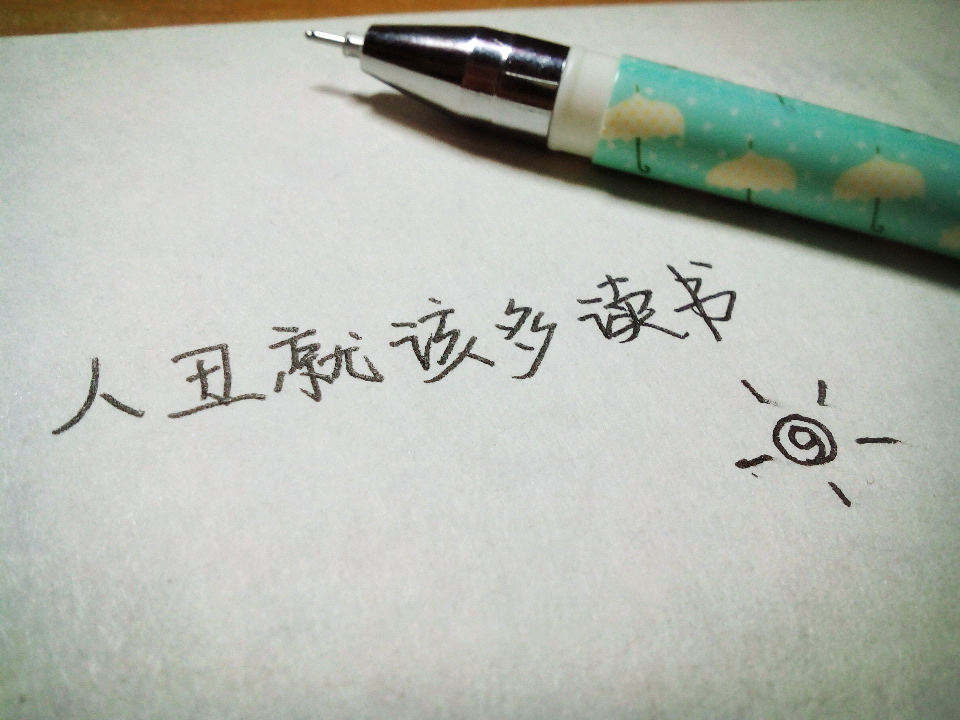 人丑就该多读书